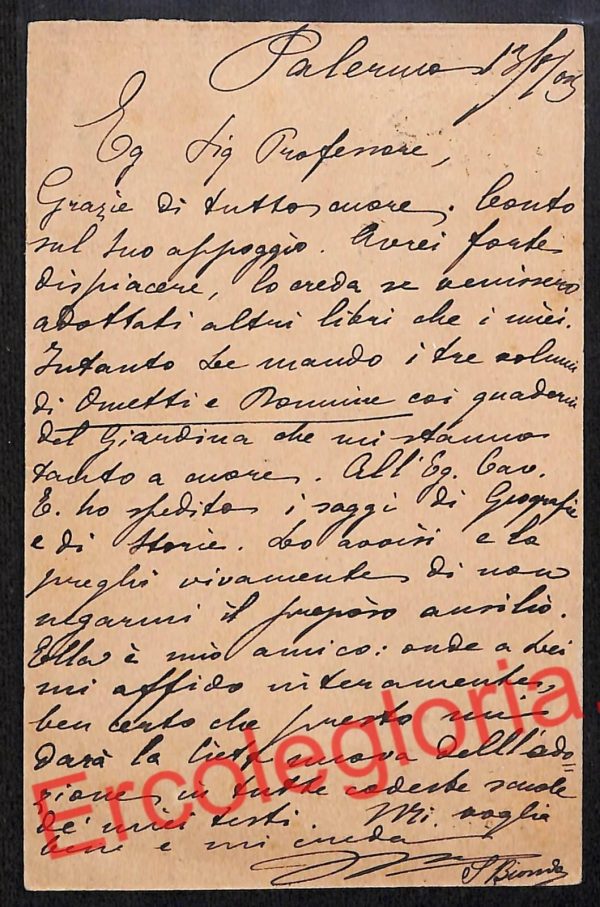 Palermo 13/8/03
Eg Sig Professore,
Grazie di tutto cuore. Conto
sul Suo appoggio. Avrei forte
dispiacere, lo creda se venissero
adottati altri libri che i miei.
Intanto Le mando i tre volumi
di Ometti e Donnine coi quaderni
del Giardina che mi stanno
tanto a cuore. All'Eg. Cav.
E. ho spedito i saggi di Geografie
e di Storie. Lo avvisi e lo
preghi vivamente di non
negarmi il ausilio.
Ella è mio amico: onde a Lei
mi affido interamente,
ben certo che presto mi
darà la lieta nuova dell'ado=
zione in tutte codeste scuole
de' miei testi. Mi voglia
bene e mi creda
S Biondo
Ercolegloria.